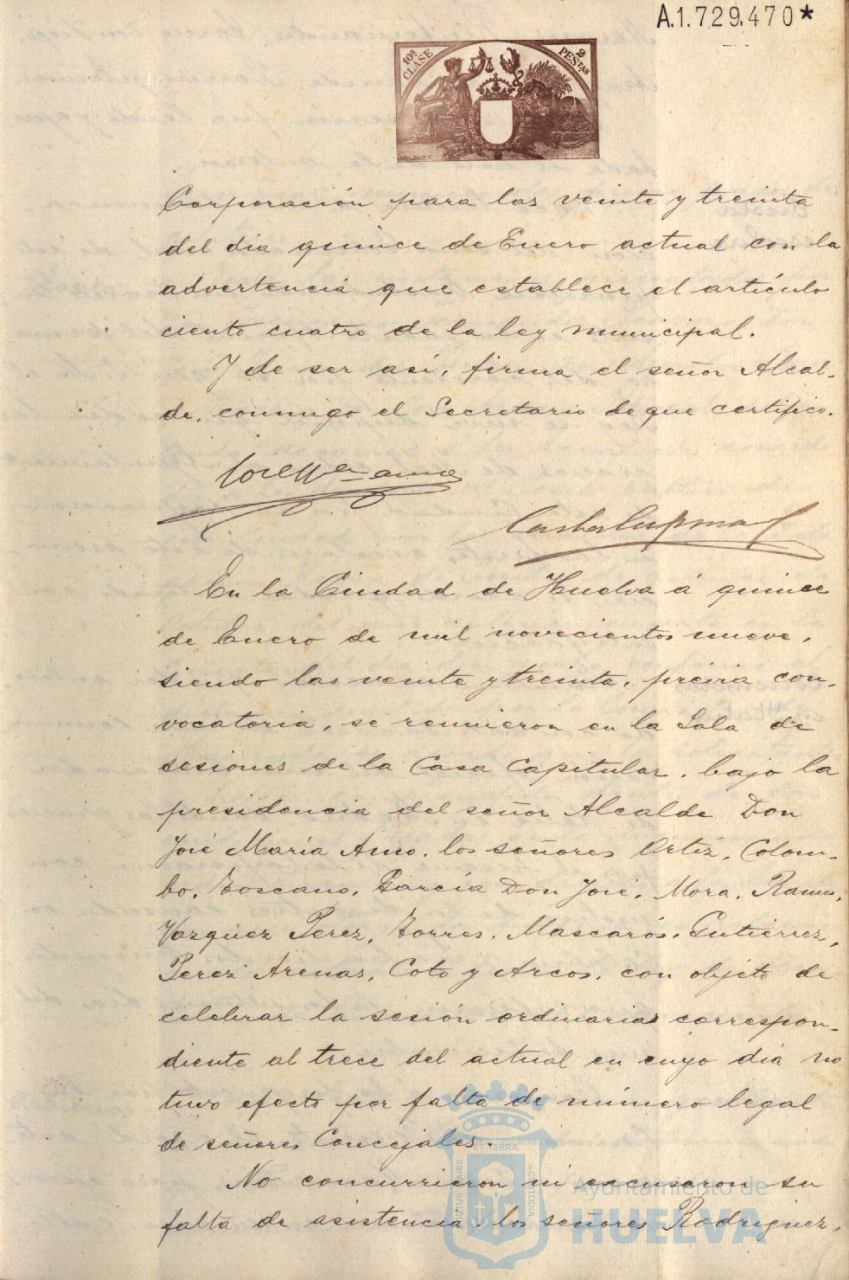 A.1.729.470*
10ª CLASE
2 PESTAS
Corporación para las veinte y treinta
del día quince de Enero actual con la
advertencia que establece el artículo
ciento cuatro de la ley municipal.
Y de ser así, firma el señor Alcal-
de, conmigo el Secretario de que certifico.
En la Ciudad de Huelva á quince
de Enero de mil novecientos nueve,
siendo las veinte y treinta, prévia con-
vocatoria, se reunieron en la Sala de
sesiones de la Casa Capitular, bajo la
presidencia del señor Alcalde Don
José María Amo, los señores Ortiz, Colom-
bo, Toscano, García Don José, Mora, Ramos,
Vazquez Perez, Torres, Mascarós, Gutierrez,
Perez Arenas, Coto y Arcos, con objeto de
celebrar la sesión ordinaria correspon-
diente al trece del actual en cuyo día no
tuvo efecto por falta de número legal
de señores Concejales.
No concurrieron ni excusaron su
falta de asistencia los señores Rodriguez,
Ayuntamiento de
HUELVA